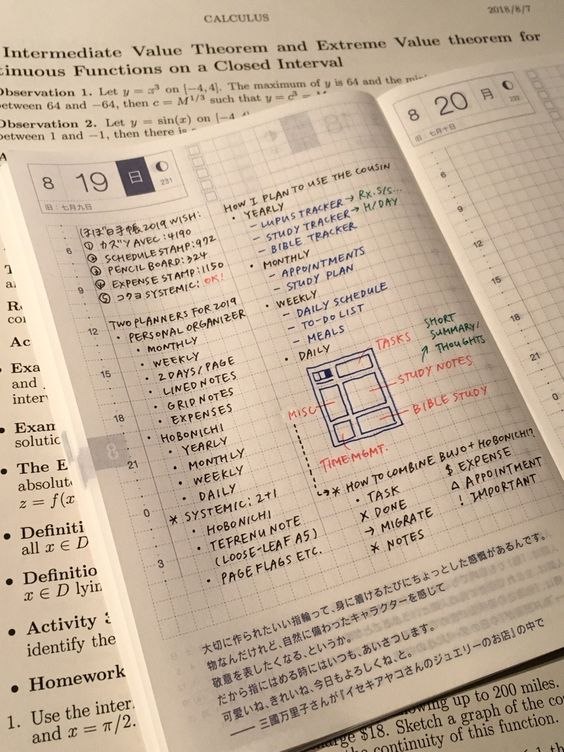 CALCULUS
2018/8/7
Intermediate Value Theorem and Extreme Value theorem for
tinuous Functions on a Closed Interval
Observation 1. Let y = x³ on [-4, 4]. The maximum of y is 64 and the
between 64 and -64, then c = M^1/3 such that y = c³ =
Observation 2. Let y = sin(x) on
between 1 and -1, then there is
8 19 日
231
旧:七月九日
ほぼ日手帳2019 WISH:
① カズン AVEC: 4190
② SCHEDULE STAMP: 972
③ PENCIL BOARD: 324
④ EXPENSE STAMP: 1150
⑤ コクヨ SYSTEMIC: OK!
TWO PLANNERS FOR 2019
• PERSONAL ORGANIZER
• MONTHLY
• WEEKLY
• 2 DAYS/PAGE
• LINED NOTES
• GRID NOTES
• EXPENSES
• HOBONICHI
• YEARLY
• MONTHLY
• WEEKLY
• DAILY
* SYSTEMIC: 2+1
• HOBONICHI
• TEFRENU NOTE
(LOOSE-LEAF A5)
• PAGE FLAGS ETC.
6
9
12
15
18
8
21
0
3
HOW I PLAN TO USE THE COUSIN
• YEARLY
- LUPUS TRACKER → Rx, S/S...
- STUDY TRACKER → H/DAY
- BIBLE TRACKER
• MONTHLY
- APPOINTMENTS
- STUDY PLAN
• WEEKLY
- DAILY SCHEDULE
- TO-DO LIST
- MEALS
• DAILY
SHORT
SUMMARY/
THOUGHTS
TASKS
STUDY NOTES
MISC
BIBLE STUDY
TIME MGMT.
* HOW TO COMBINE BUJO + HOBONICHI?
• TASK
X DONE
→ MIGRATE
* NOTES
$ EXPENSE
△ APPOINTMENT
! IMPORTANT
大切に作られたいい指輪って、身に着けるたびにちょっとした感慨があるんです。
物なんだけれど、自然に備わったキャラクターを感じて
敬意を表したくなる、というか。
だから指にはめる時にはいつも、あいさつします。
可愛いね、きれいね、今日もよろしくね、と。
── 三國万里子さんが『イセキアヤコさんのジュエリーのお店』の中で
8 20 月
232
旧:七月十日
6
9
12
15
18
21
0
Ac
Exa
and
inter
Exam
solutic
The E
absolut
z = f(x
Definiti
all x ∈ D
Definitio
x ∈ D lyin
Activity
identify the
Homework
1. Use the inter
and x = π/2.
wing up to 200 miles.
rge $18. Sketch a graph of the co
the continuity of this function.